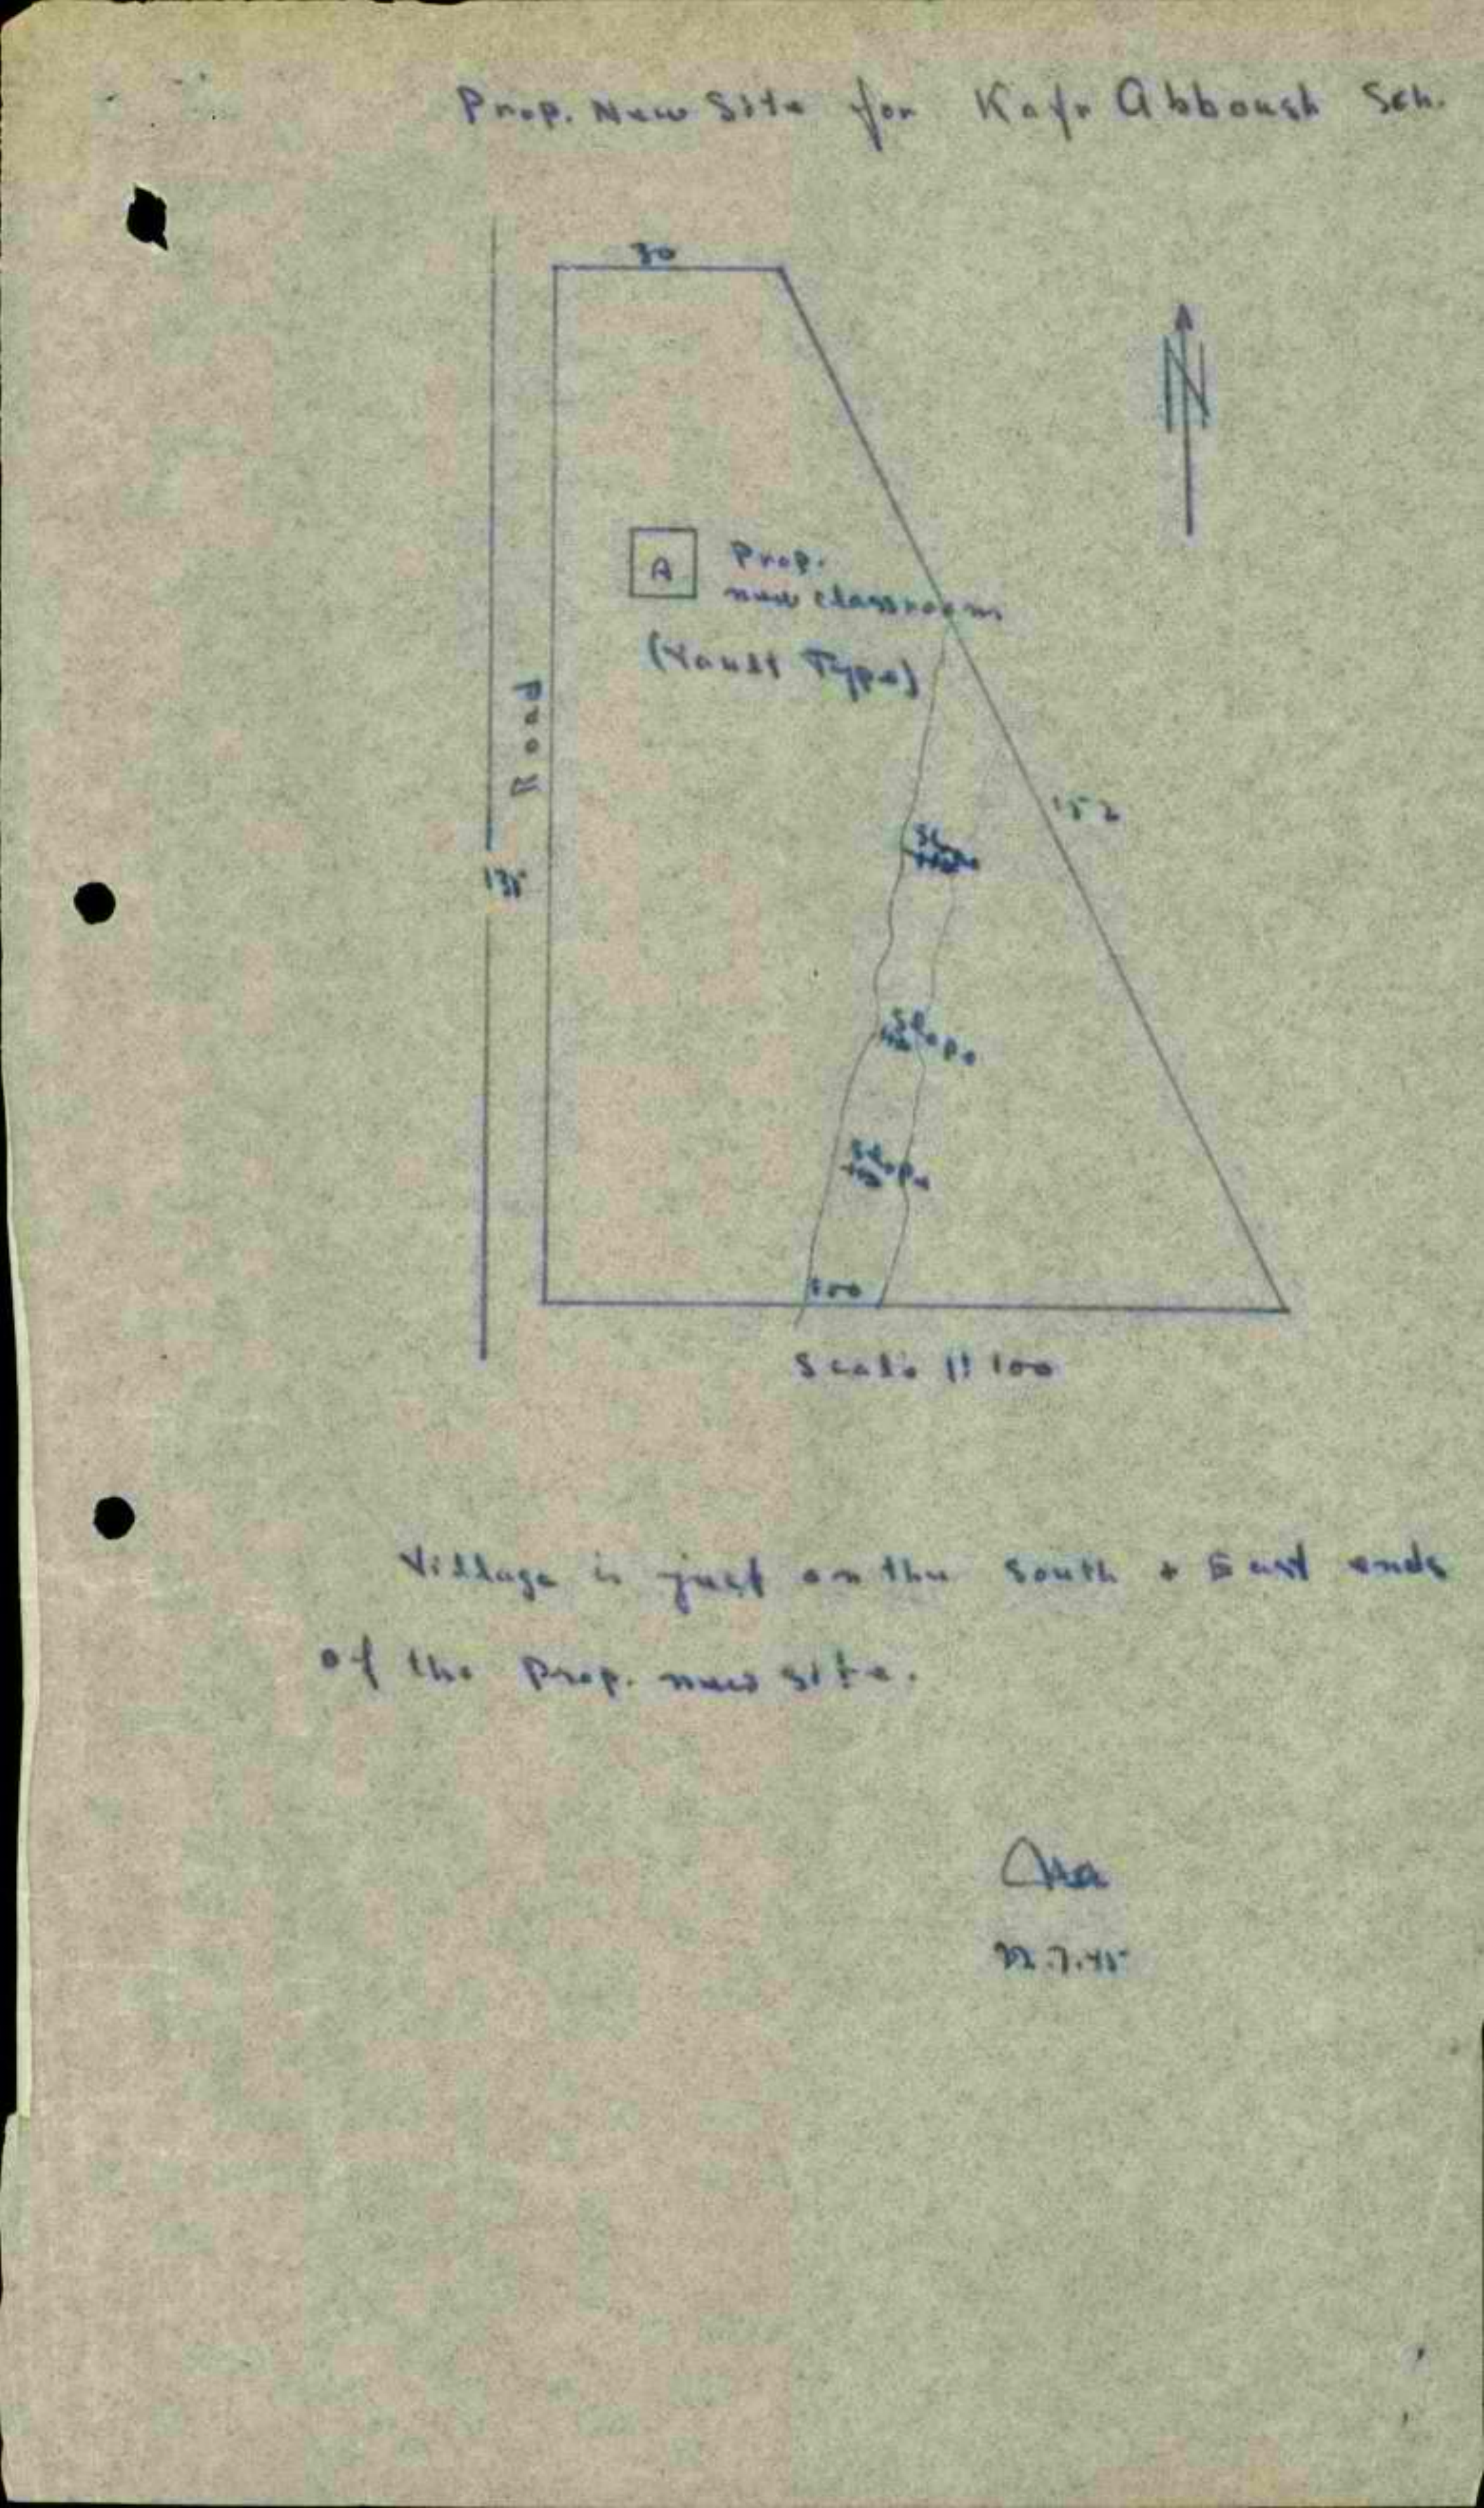 Prop. New Site for Kafr Abboush Sch.
30
N
A
Prop.
new classroom
(Vault Type)
Road
152
135
Slope
Slope
100
Scale 1:100
Village is just on the South + East ends
of the Prop. new site.
22.7.45